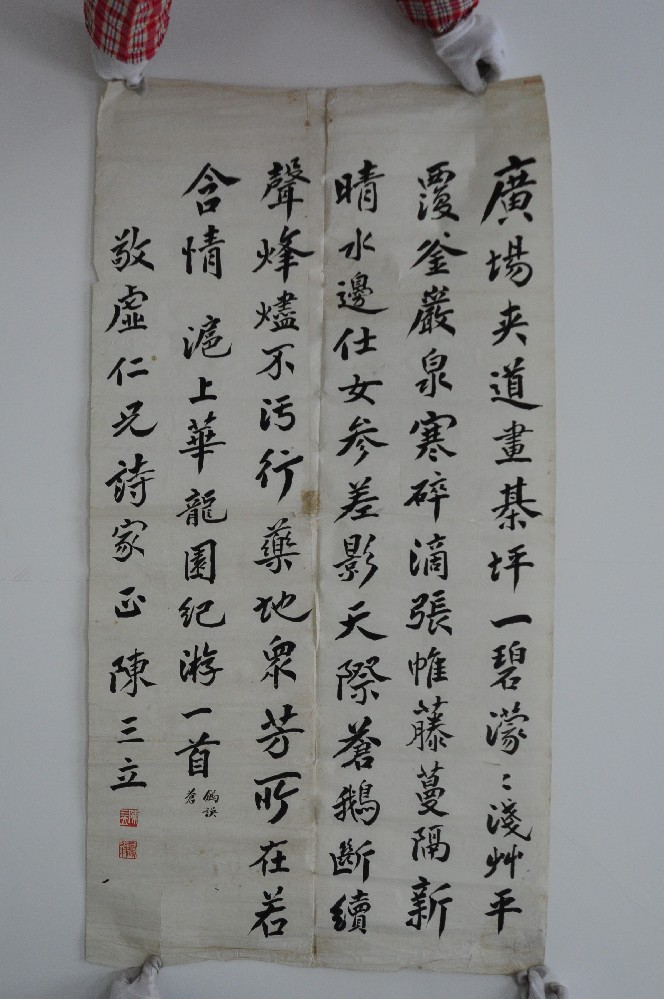 廣場夾道畫棊坪一碧濛〻淺艸平
覆釜巖泉寒碎滴張帷藤蔓隔新
晴水邊仕女參差影天際蒼鵝斷續
聲烽燼不污行藥地衆芳所在若
含情 滬上華龍園紀游一首
鶬誤
蒼
敬虛仁兄詩家正 陳三立